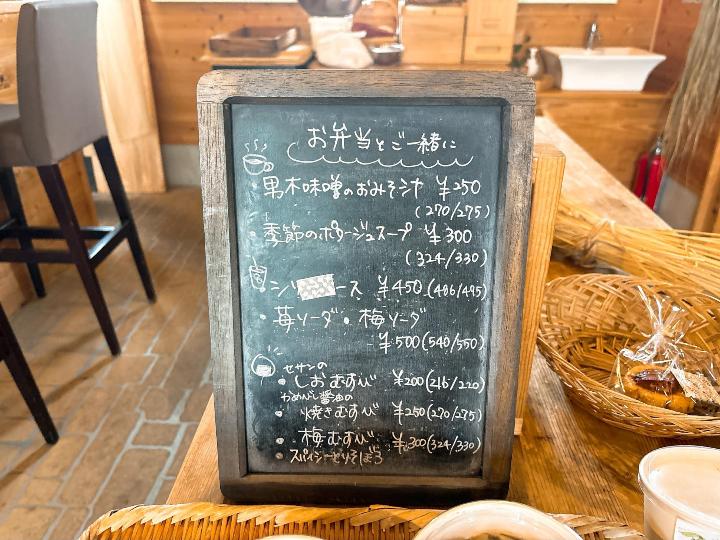 お弁当とご一緒に
・男木味噌のおみそ汁 ¥250
(270/275)
・季節のポタージュスープ ¥300
(324/330)
ース ¥450 (486/495)
・苺ソーダ・梅ソーダ
¥500 (540/550)
セサンの
・しおむすび ¥200 (216/220)
醤油の
・焼きむすび ¥250 (270/275)
梅むすび ¥300 (324/330)
・スパイシーせりそぼろ